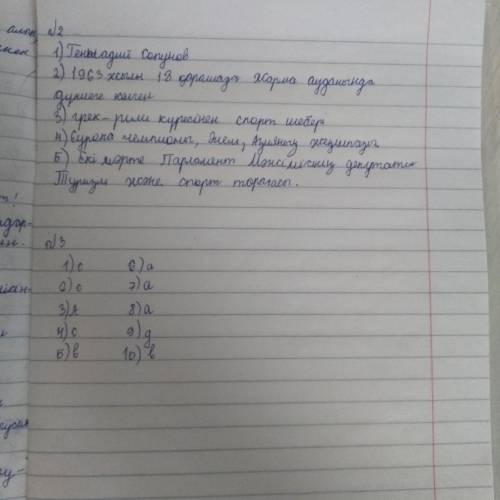 №2
1) Геннадий Сапунов
2) 1963 жылы 18 қарашада Жарма ауданында
дүниеге келген
3) грек-рими күресінен спорт шебер
4) Еуропа чемпионы, Әлем, Азияның жүлдегері
5) Екі мәрте Парламент Мәжілісінің депутаты
Туризм және спорт төрағасы.
№3
1) с 6) а
2) с 7) а
3) А 8) а
4) с 9) д
5) в 10) в